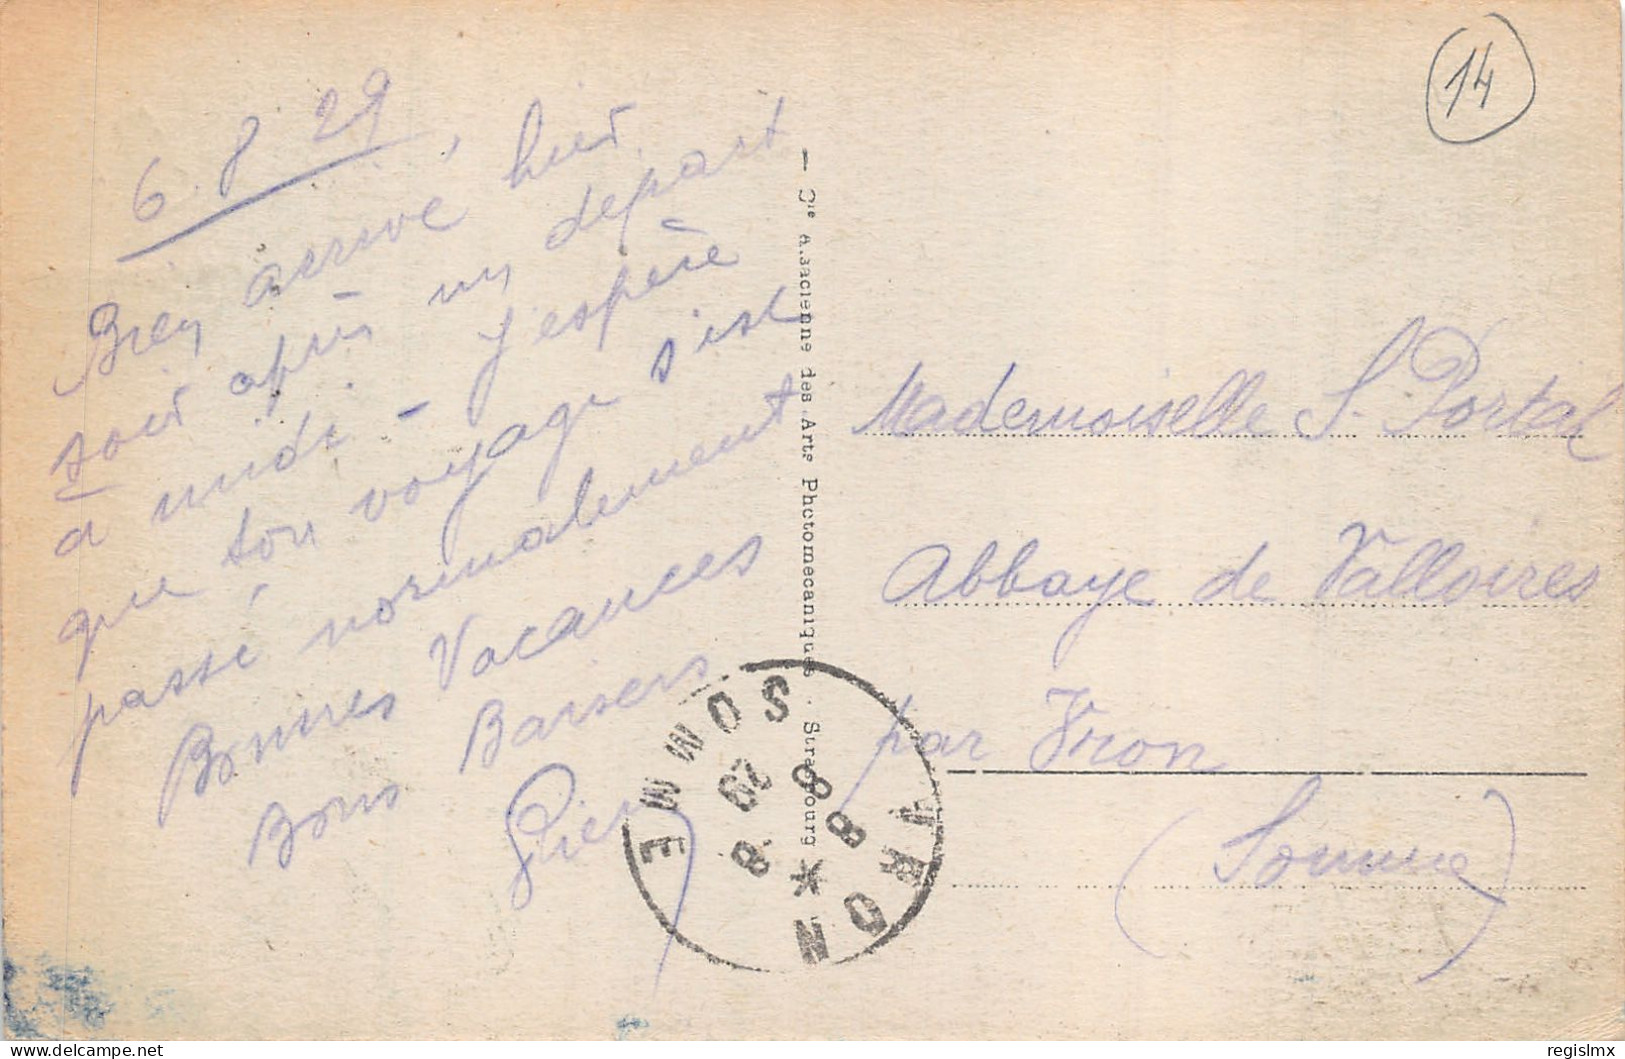 14
6.8.29
Bien arrivé, hier
soir après un départ
à midi - J'espère
que ton voyage s'est
passé normalement
Bonnes Vacances
Bons Baisers
— Cie Alsacienne des Arts Photomecaniques · Strasbourg
Mademoiselle S. Portal
Abbaye de Valloires
par Vron
(Somme)
VRON * SOMME
8
8 - 8
29
regislmx